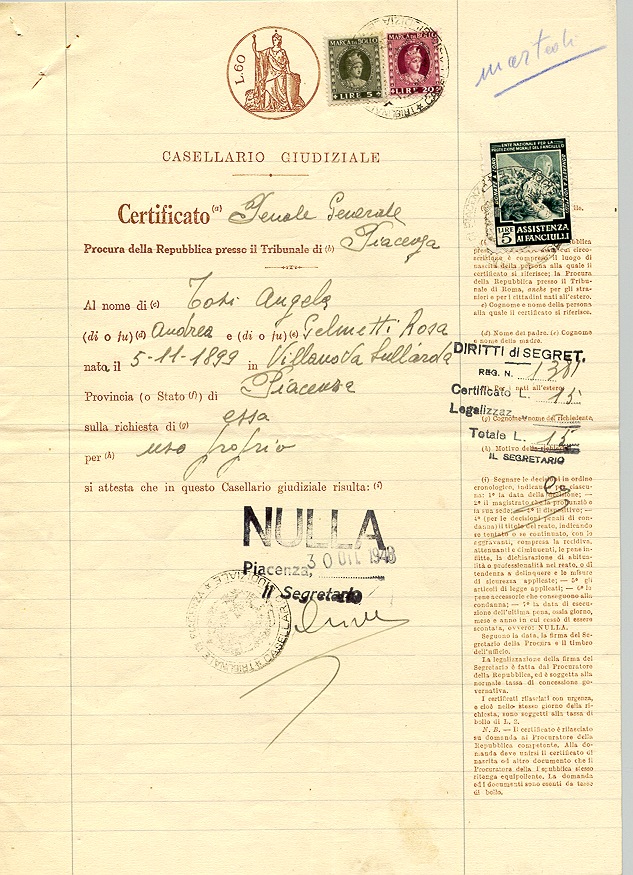 martedì
L.60
MARCA DA BOLLO
LIRE 5
MARCA DA BOLLO
LIRE 20
ENTE NAZIONALE PER LA
PROTEZIONE MORALE DEL FANCIULLO
LIRE 5 ASSISTENZA
AI FANCIULLI
CASELLARIO GIUDIZIALE
Certificato (a) Penale Generale
Procura della Repubblica presso il Tribunale di (b) Piacenza
Al nome di (c) Tosi Angela
(di o fu) (d) Andrea e (di o fu) (e) Gelmetti Rosa
nata il 5-11-1899 in Villanova Sull'arda
Provincia (o Stato) (f) di Piacenza
sulla richiesta di (g) essa
per (h) uso proprio
si attesta che in questo Casellario giudiziale risulta: (i)
NULLA
Piacenza, 30 DIC 1948
Il Segretario
nascita della persona alla quale il
certificato si riferisce; la Procura
della Repubblica presso il Tribu-
nale di Roma, anche per gli stra-
nieri e per i cittadini nati all'estero.
c) Cognome e nome della persona
alla quale il certificato si riferisce.
(d) Nome del padre. (e) Cognome
e nome della madre.
DIRITTI di SEGRET.
REG. N. 1381
(f) Per i nati all'estero
Certificato L. 15
Legalizzaz. "
(g) Cognome e nome del richiedente.
Totale L. 15
(h) Motivo della richiesta
IL SEGRETARIO
(i) Segnare le decisioni in ordine
cronologico, indicando per ciascu-
na: 1° la data della decisione; —
2° il magistrato che la pronunziò e
la sua sede; — 3° il dispositivo; —
4° (per le decisioni penali di con-
danna) il titolo del reato, indicando
se tentato o se continuato, con le
aggravanti, compresa la recidiva,
attenuanti e diminuenti, le pene in-
flitte, la dichiarazione di abitua-
lità o professionalità nel reato, o di
tendenza a delinquere e le misure
di sicurezza applicate; — 5° gli
articoli di legge applicati; — 6° le
pene accessorie che conseguono alla
condanna; — 7° la data di esecu-
zione dell'ultima pena, ossia giorno,
mese e anno in cui cessò di essere
scontata, ovvero: NULLA.
Seguano la data, la firma del Se-
gretario della Procura e il timbro
dell'ufficio.
La legalizzazione della firma del
Segretario è fatta dal Procuratore
della Repubblica, ed è soggetta alla
normale tassa di concessione go-
vernativa.
I certificati rilasciati con urgenza,
e cioè nello stesso giorno della ri-
chiesta, sono soggetti alla tassa di
bollo di L. 2.
N. B. — Il certificato è rilasciato
su domanda al Procuratore della
Repubblica competente. Alla do-
manda deve unirsi il certificato di
nascita od altro documento che il
Procuratore della Repubblica stesso
ritenga equipollente. La domanda
ed i documenti sono esenti da tasse
di bollo.